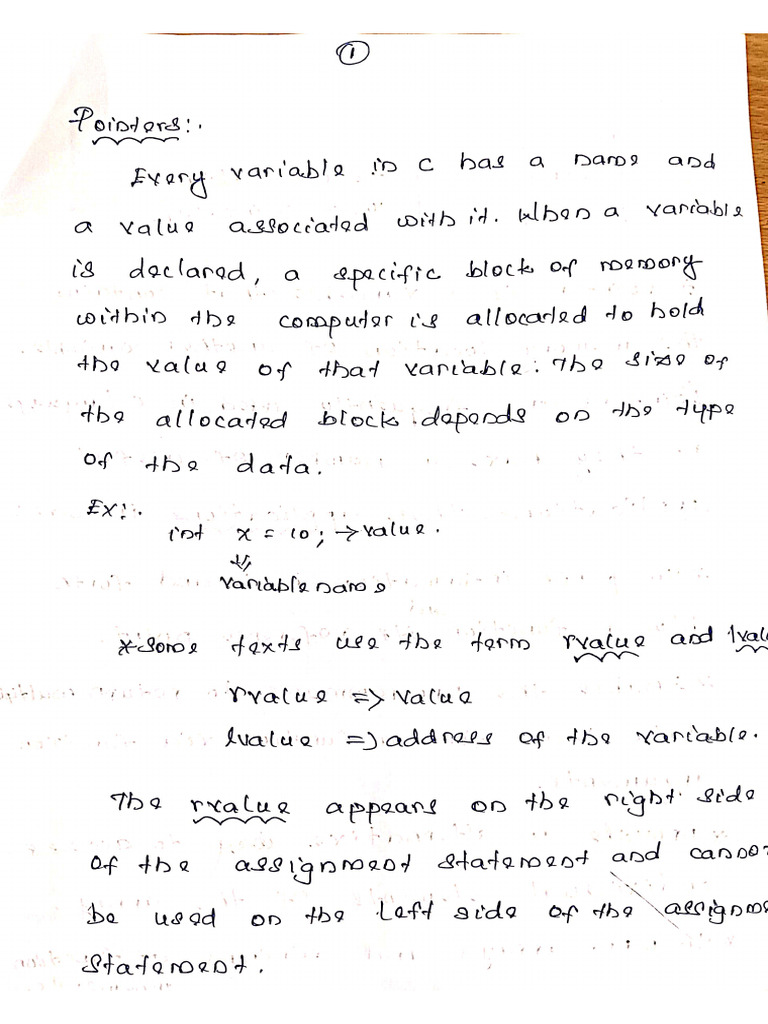 1
Pointers:.
Every variable in C has a name and
a value associated with it. When a variable
is declared, a specific block of memory
within the computer is allocated to hold
the value of that variable. The size of
the allocated block depends on the type
of the data.
Ex:.
int x = 10; → value.
⇓
variable name
*Some texts use the term rvalue and lval
rvalue => value
lvalue => address of the variable.
The rvalue appears on the right side
of the assignment statement and canno
be used on the left side of the assignme
statement.